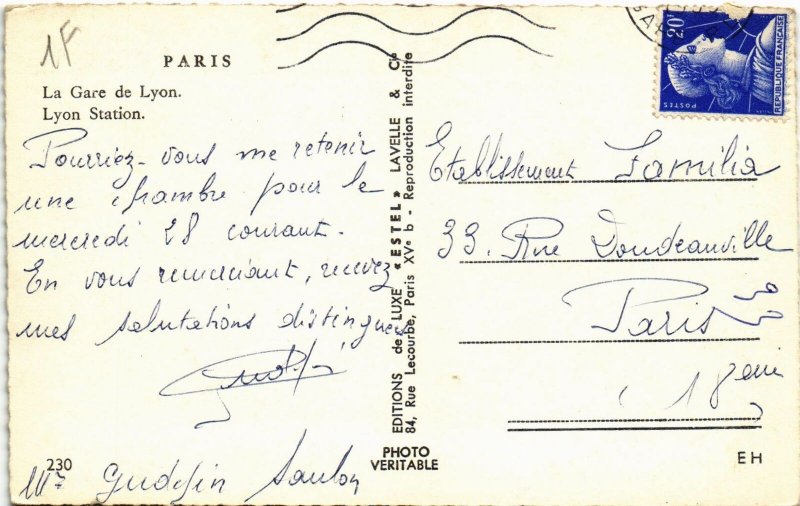 1F
PARIS
La Gare de Lyon.
Lyon Station.
Pourriez-vous me retenir
une chambre pour le
mercredi 28 courant.
En vous remerciant, recevez
mes salutations distinguées
230
Mr
EDITIONS de LUXE "ESTEL" LAVELLE & Cie
84, Rue Lecourbe, Paris XVe b - Reproduction interdite
PHOTO
VERITABLE
20F
POSTES
REPUBLIQUE FRANÇAISE
Etablissement Familia
33. Rue Doudeauville
Paris
18eme
EH